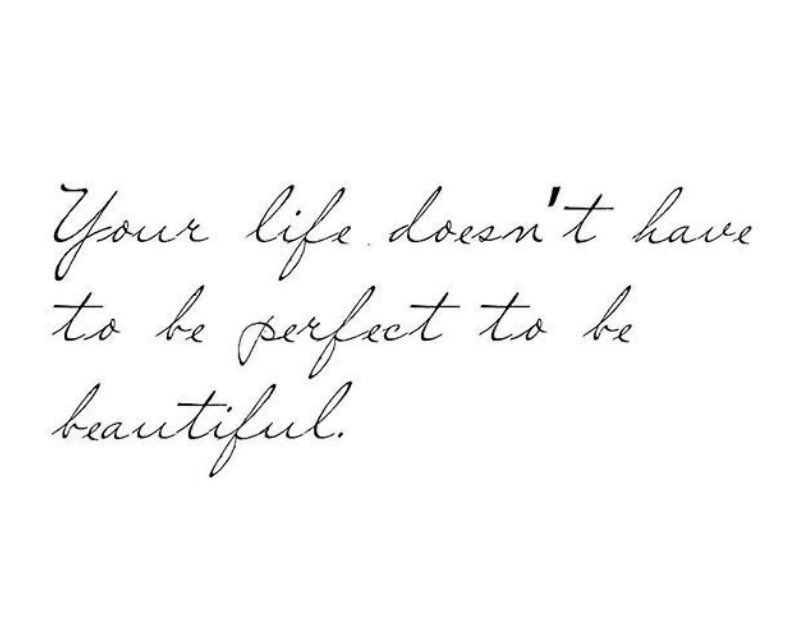 Your life doesn't have
to be perfect to be
beautiful.